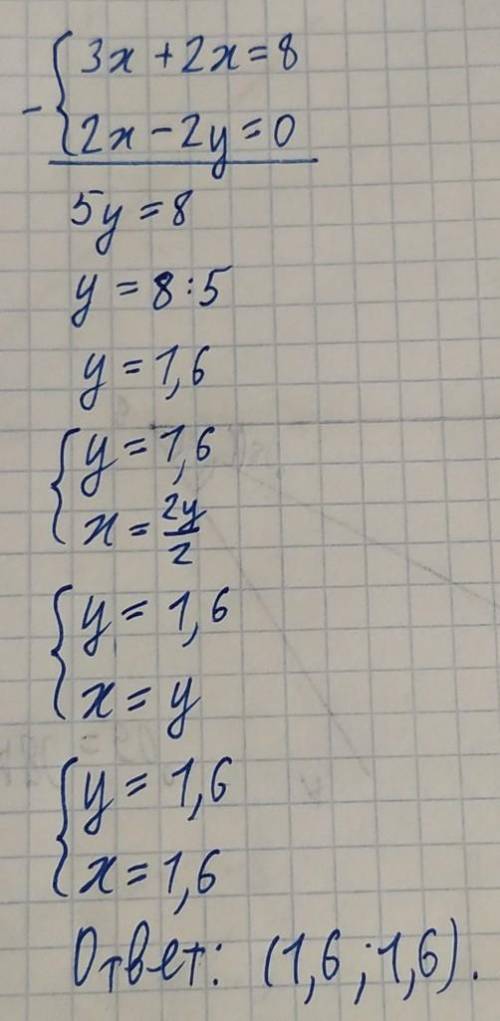 - { 3x + 2x = 8
2x - 2y = 0
5y = 8
y = 8 : 5
y = 1,6
{ y = 1,6
x = 2y/2
{ y = 1,6
x = y
{ y = 1,6
x = 1,6
Ответ: (1,6 ; 1,6).